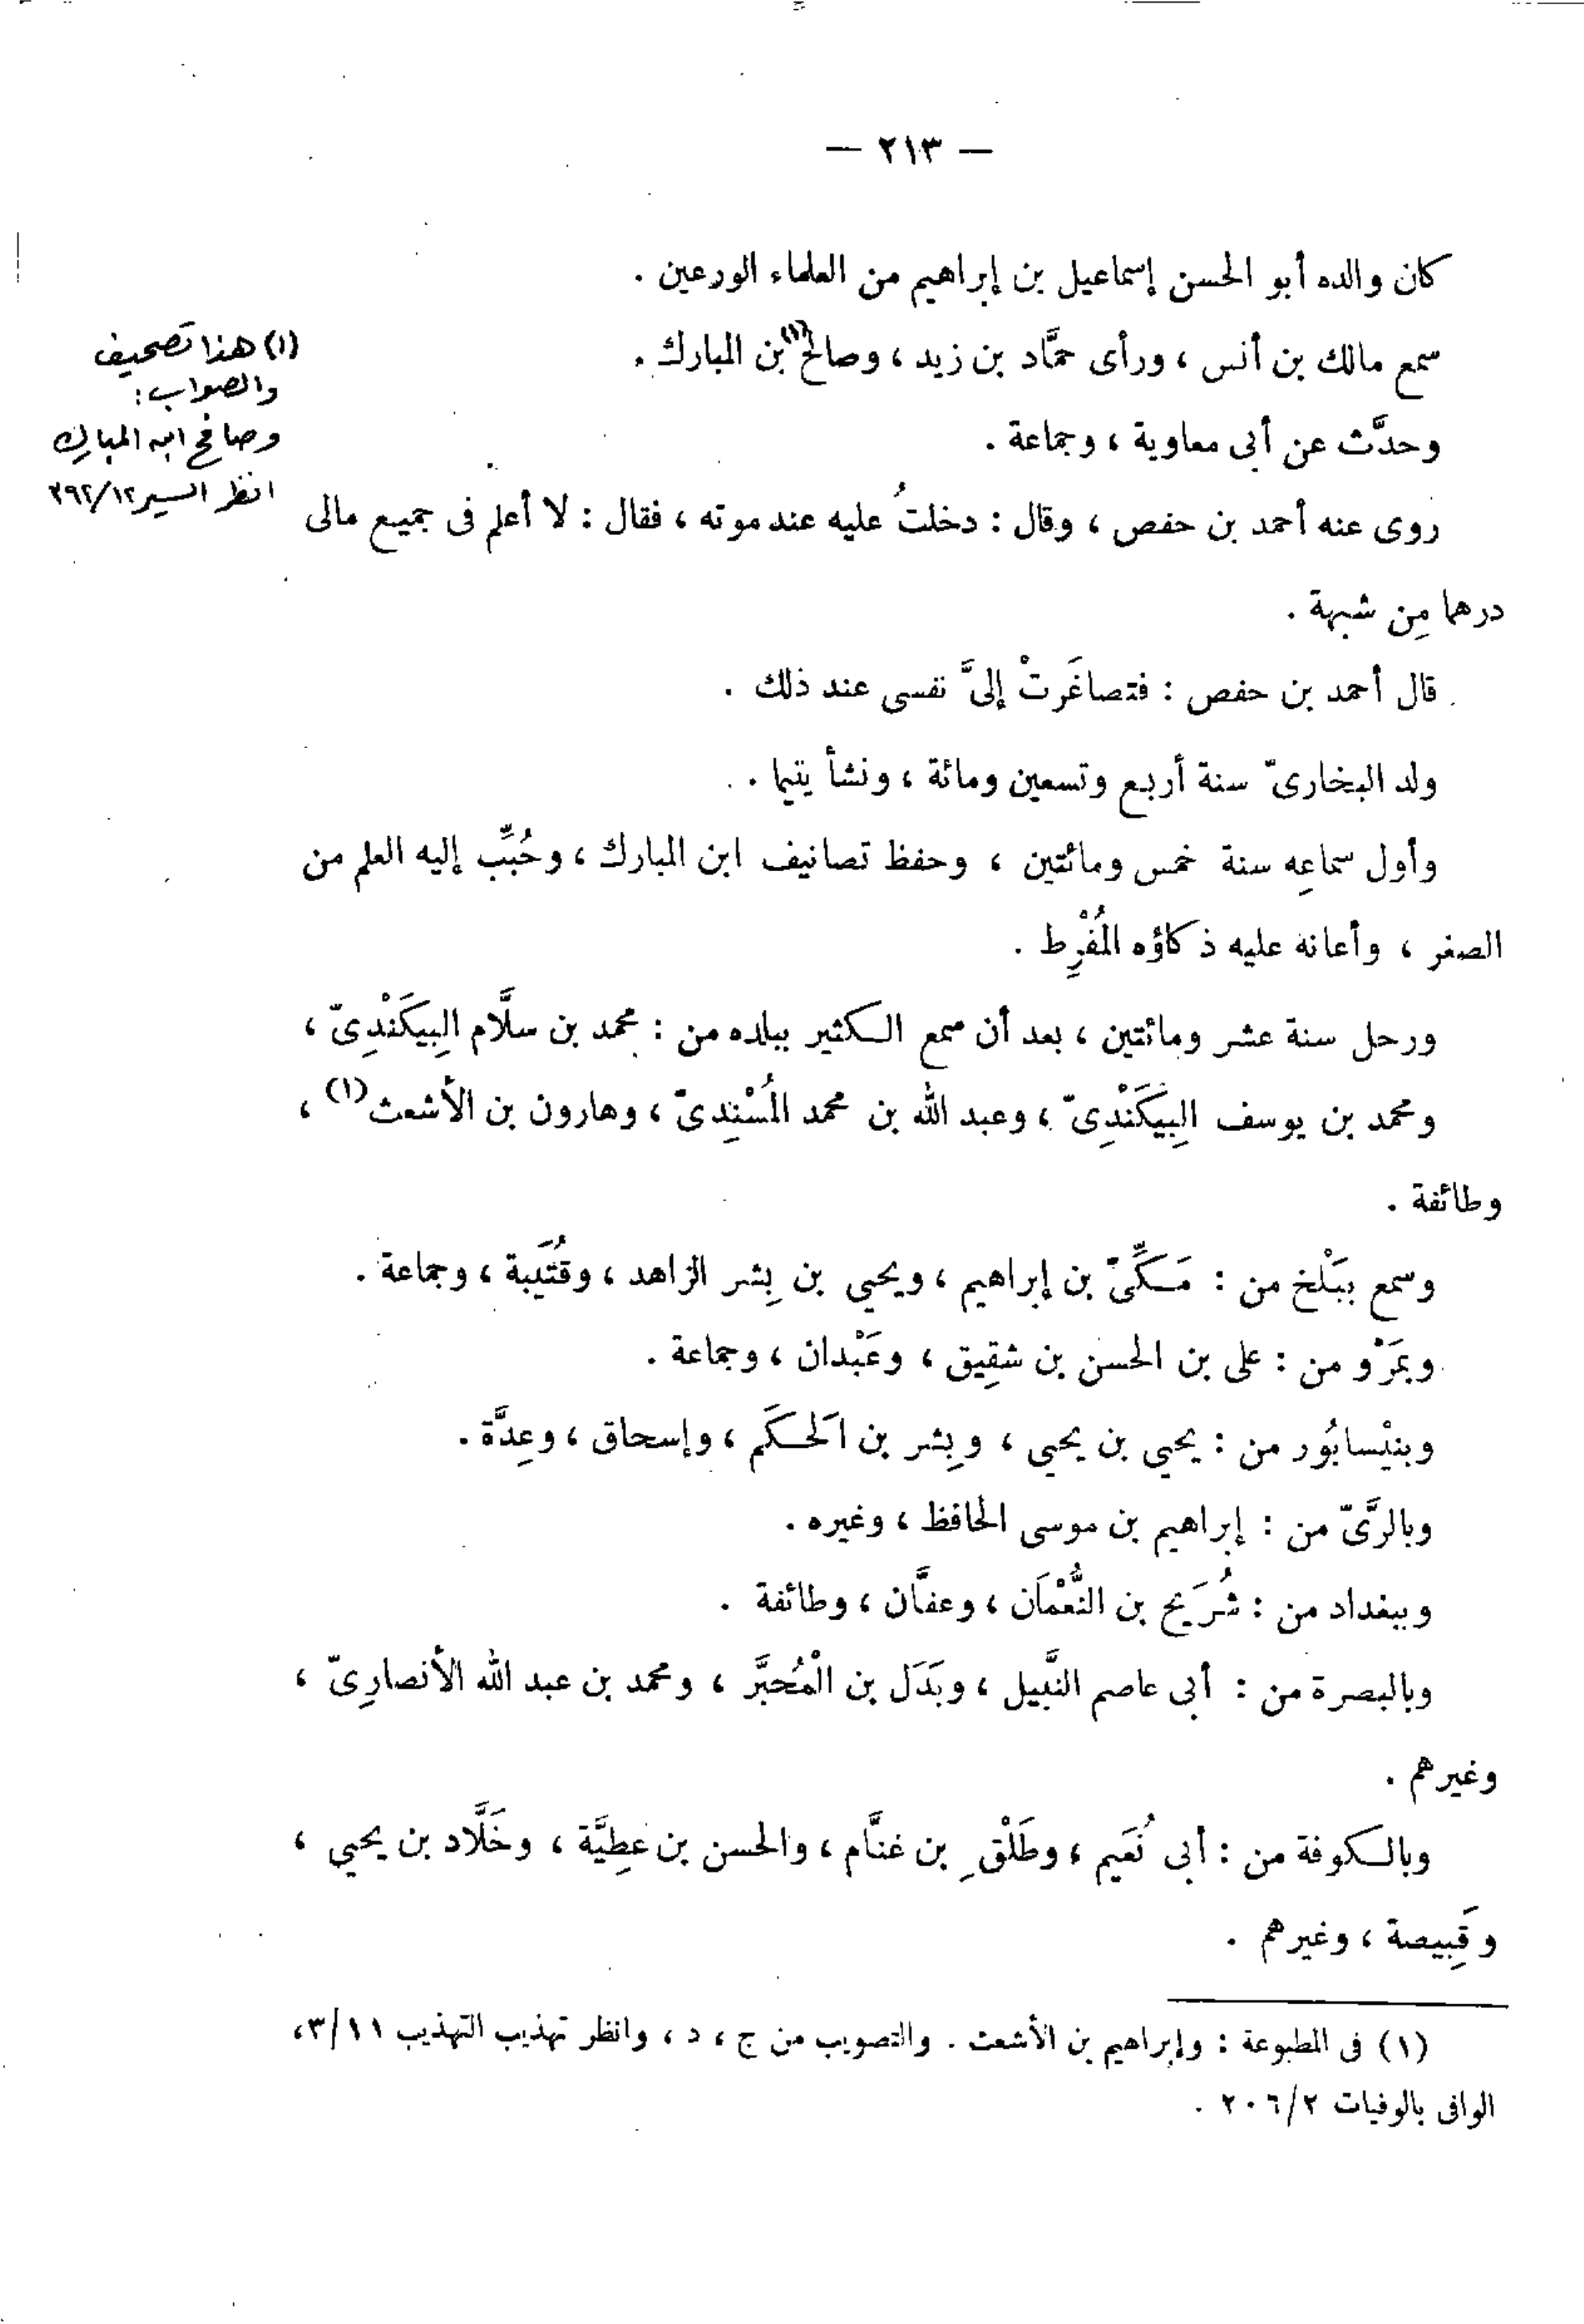 — ٢١٣ —
كان والده أبو الحسن إسماعيل بن إبراهيم من العلماء الورعين .
سمع مالك بن أنس ، ورأى حمَّاد بن زيد ، وصالح(١) بن المبارك .
وحدَّث عن أبى معاوية ، وجماعة .
روى عنه أحمد بن حفص ، وقال : دخلتُ عليه عند موته ، فقال : لا أعلم فى جميع مالى
درهما مِن شبهة .
قال أحمد بن حفص : فتصاغَرتْ إلىَّ نفسى عند ذلك .
ولد البخارىّ سنة أربع وتسعين ومائة ، ونشأ يتيما .
وأول سماعِه سنة خمس ومائتين ، وحفظ تصانيف ابن المبارك ، وحُبِّب إليه العلم من
الصغر ، وأعانه عليه ذكاؤه المُفْرِط .
ورحل سنة عشر ومائتين ، بعد أن سمع الكثير ببلده من : محمد بن سلَّام البِيكَنْدِىّ ،
ومحمد بن يوسف البِيكَنْدِىّ ، وعبد الله بن محمد المُسْنِدِىّ ، وهارون بن الأشعث(١) ،
وطائفة .
وسمع ببَلْخ من : مَكِّىّ بن إبراهيم ، ويحيى بن بِشر الزاهد ، وقُتَيبة ، وجماعة .
وبمَرْو من : على بن الحسن بن شقِيق ، وعَبْدان ، وجماعة .
وبنيْسابُور من : يحيى بن يحيى ، وبِشر بن الحَكَم ، وإسحاق ، وعِدَّة .
وبالرَّىّ من : إبراهيم بن موسى الحافظ ، وغيره .
وببغداد من : شُرَيح بن النُّعْمَان ، وعفَّان ، وطائفة .
وبالبصرة من : أبى عاصم النَّبيل ، وبَدَل بن الْمُحبَّر ، ومحمد بن عبد الله الأنصارِىّ ،
وغيرهم .
وبالكوفة من : أبى نُعَيم ، وطَلْقِ بن غنَّام ، والحسن بن عطِيَّة ، وخَلَّاد بن يحيى ،
وقَبِيصة ، وغيرهم .
(١) فى المطبوعة : وإبراهيم بن الأشعث . والتصويب من ج ، د ، وانظر تهذيب التهذيب ٣/١١،
الوافى بالوفيات ٢٠٦/٢ .
(١) هذا تصحيف
والصواب :
وصافح ابن المبارك
انظر السير ٣٩٢/١٢